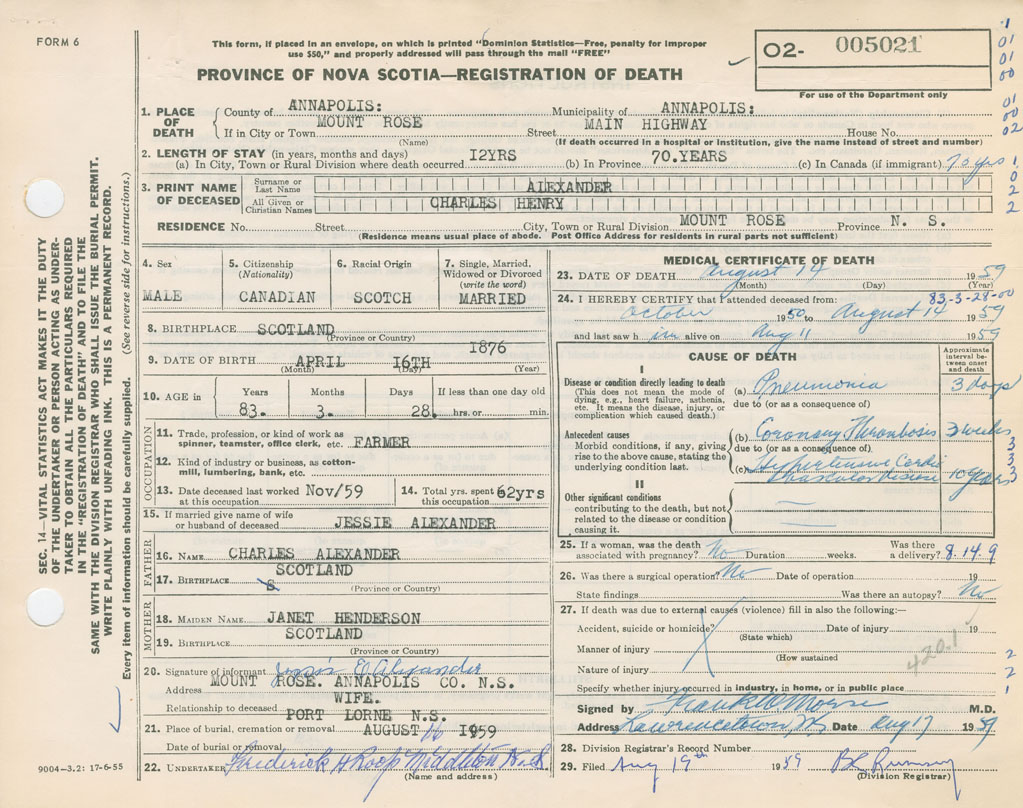 FORM 6
This form, if placed in an envelope, on which is printed "Dominion Statistics—Free, penalty for improper
use $50," and properly addressed will pass through the mail "FREE"
PROVINCE OF NOVA SCOTIA—REGISTRATION OF DEATH
02- 005021
For use of the Department only
1
01
01
00
01
00
02
1. PLACE OF DEATH
County of ANNAPOLIS: Municipality of ANNAPOLIS:
If in City or Town MOUNT ROSE Street MAIN HIGHWAY House No.
(Name) (If death occurred in a hospital or institution, give the name instead of street and number)
2. LENGTH OF STAY (in years, months and days)
(a) In City, Town or Rural Division where death occurred 12YRS (b) In Province 70.YEARS (c) In Canada (if immigrant) 70 yrs
1
0
2
2
3. PRINT NAME OF DECEASED
Surname or Last Name ALEXANDER
All Given or Christian Names CHARLES HENRY
RESIDENCE No. Street City, Town or Rural Division MOUNT ROSE Province N. S.
(Residence means usual place of abode. Post Office Address for residents in rural parts not sufficient)
SEC. 14—VITAL STATISTICS ACT MAKES IT THE DUTY
OF THE UNDERTAKER OR PERSON ACTING AS UNDER-
TAKER TO OBTAIN ALL THE PARTICULARS REQUIRED
IN THE "REGISTRATION OF DEATH" AND TO FILE THE
SAME WITH THE DIVISION REGISTRAR WHO SHALL ISSUE THE BURIAL PERMIT.
WRITE PLAINLY WITH UNFADING INK. THIS IS A PERMANENT RECORD.
Every item of information should be carefully supplied. (See reverse side for instructions.)
4. Sex MALE
5. Citizenship (Nationality) CANADIAN
6. Racial Origin SCOTCH
7. Single, Married, Widowed or Divorced (write the word) MARRIED
8. BIRTHPLACE SCOTLAND
(Province or Country)
9. DATE OF BIRTH APRIL 16TH 1876
(Month) (Day) (Year)
10. AGE in Years Months Days If less than one day old
83. 3. 28. hrs. or min.
OCCUPATION
11. Trade, profession, or kind of work as
spinner, teamster, office clerk, etc. FARMER
12. Kind of industry or business, as cotton-
mill, lumbering, bank, etc.
13. Date deceased last worked at this occupation. Nov/59
14. Total yrs. spent this occupation 62yrs
15. If married give name of wife
or husband of deceased JESSIE ALEXANDER
FATHER
16. NAME CHARLES ALEXANDER
17. BIRTHPLACE SCOTLAND
(Province or Country)
MOTHER
18. MAIDEN NAME JANET HENDERSON
19. BIRTHPLACE SCOTLAND
(Province or Country)
20. Signature of informant Jessie E Alexander
Address MOUNT ROSE. ANNAPOLIS CO. N.S.
Relationship to deceased WIFE.
21. Place of burial, cremation or removal PORT LORNE N.S.
Date of burial or removal AUGUST 16 1959
22. UNDERTAKER Frederick H Roop Middleton N.S.
(Name and address)
9004-3.2: 17-6-55
MEDICAL CERTIFICATE OF DEATH
23. DATE OF DEATH August 14 1959
(Month) (Day) (Year)
83-3-28-00
24. I HEREBY CERTIFY that I attended deceased from:
October 1950 to August 14 1959
and last saw h im alive on Aug 11 1959
CAUSE OF DEATH
Approximate interval between onset and death
I
Disease or condition directly leading to death
(This does not mean the mode of
dying, e.g., heart failure, asthenia,
etc. It means the disease, injury, or
complication which caused death.)
(a) Pneumonia 3 days
due to (or as a consequence of)
Antecedent causes
Morbid conditions, if any, giving
rise to the above cause, stating the
underlying condition last.
(b) Coronary Thrombosis 3 weeks
due to (or as a consequence of).
(c) Hypertensive Cardio Vascular disease 10 years
3
3
3
3
II
Other significant conditions
contributing to the death, but not
related to the disease or condition
causing it.
25. If a woman, was the death
associated with pregnancy? No Duration weeks. Was there a delivery? 8.14.9
26. Was there a surgical operation? No Date of operation 19
State findings Was there an autopsy? No
27. If death was due to external causes (violence) fill in also the following:—
Accident, suicide or homicide? Date of injury 19
(State which)
Manner of injury
(How sustained
Nature of injury
420.1
Specify whether injury occurred in industry, in home, or in public place
2
2
1
Signed by Frank W Morse M.D.
Address Lawrencetown, NS Date Aug 17 1959
28. Division Registrar's Record Number
29. Filed Aug 19th 1959
(Division Registrar)